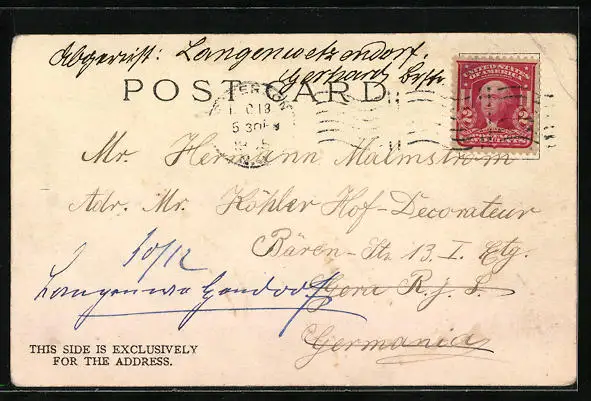 Abgereist: Langenwetzendorf.
Gerhard
POST CARD
5 30 PM
UNITED STATES
OF AMERICA
2 2
Mr. Hermann Malmström
Adr. Mr. Köhler Hof-Decorateur
Bären-Str. 13. I. Etg.
Gera R. j. L.
Germania
30/12
Langenwetzendorf
THIS SIDE IS EXCLUSIVELY
FOR THE ADDRESS.